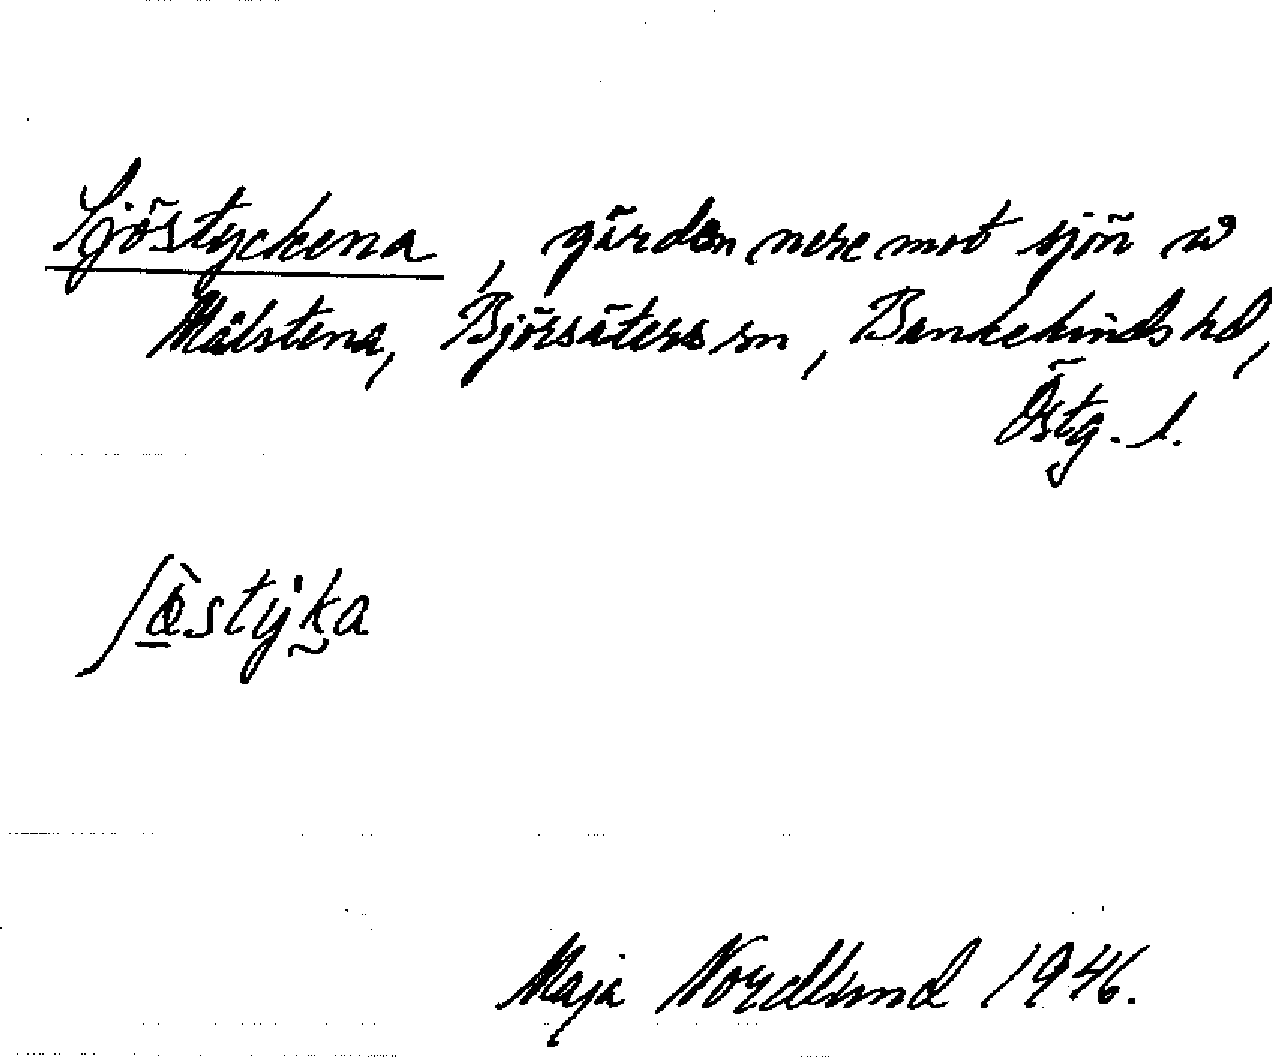 Sjöstyckena, gärden nere mot sjön w
Mälstena, Björsäters sn, Bankekinds hd,
Östg. l.
Maja Nordlund 1946.